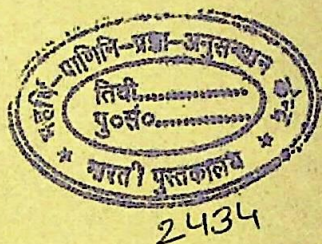 महर्षि-पाणिनि-प्रज्ञा-अनुसन्धान केन्द्र
तिथी..................
पु०सं०..................
* भारती पुस्तकालय *
2434